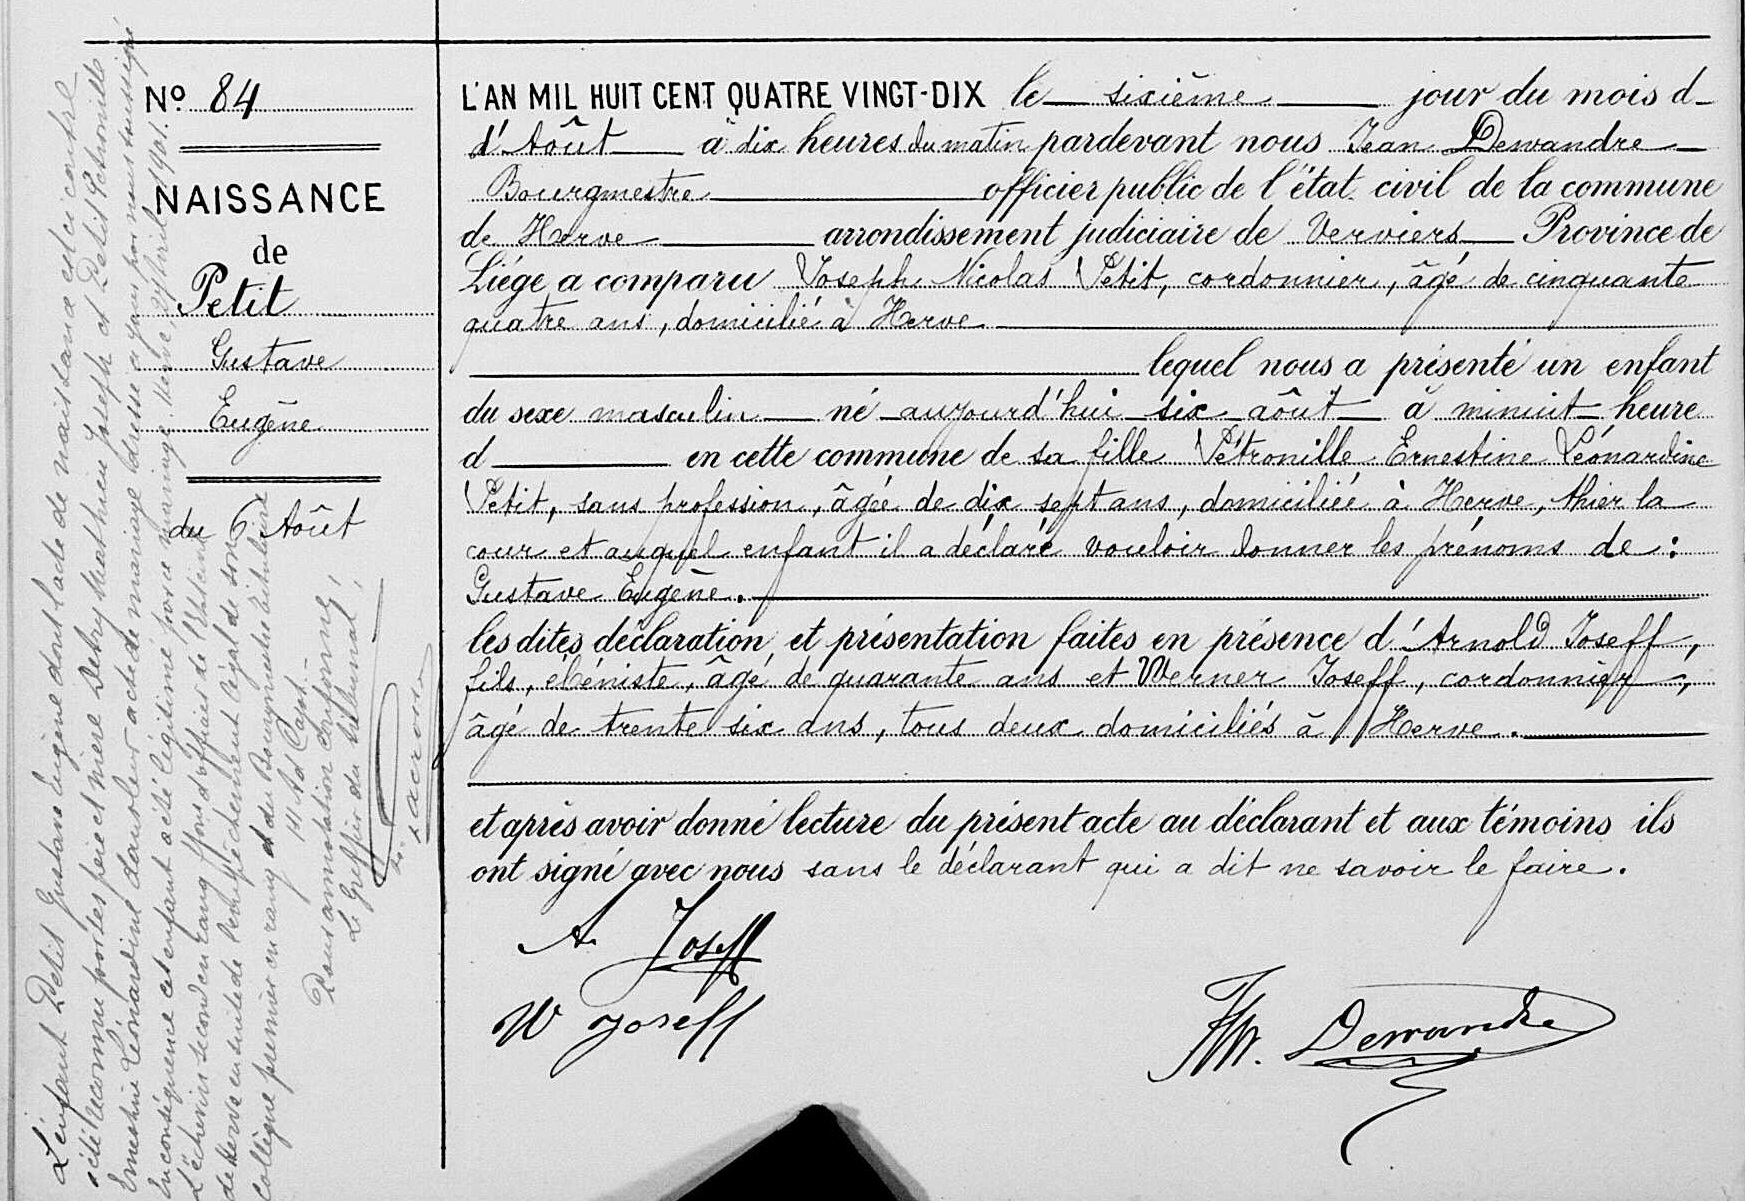 Nº 84
NAISSANCE
de
Petit
Gustave
Eugène
du 6 Août
L'AN MIL HUIT CENT QUATRE VINGT-DIX le sixième jour du mois d
d'Août à dix heures du matin pardevant nous Jean Dewandre
Bourgmestre officier public de l'état civil de la commune
de Herve arrondissement judiciaire de Verviers Province de
Liége a comparu Joseph Nicolas Petit, cordonnier, âgé de cinquante
quatre ans, domicilié à Herve
lequel nous a présenté un enfant
du sexe masculin né aujourd'hui six août à minuit heure
d en cette commune de sa fille Pétronille Ernestine Léonardine
Petit, sans profession, âgée de dix sept ans, domiciliée à Herve, thier la
cour et auquel enfant il a déclaré vouloir donner les prénoms de :
Gustave Eugène.
les dites déclaration et présentation faites en présence d'Arnold Joseff,
fils, ébéniste, âgé de quarante ans et Werner Joseff, cordonnier,
âgé de trente six ans, tous deux domiciliés à Herve.
et après avoir donné lecture du présent acte au déclarant et aux témoins ils
ont signé avec nous sans le déclarant qui a dit ne savoir le faire.
A. Joseff
W Joseff
Dewandre
L'enfant Petit Gustave Eugène dont l'acte de naissance est ci contre
a été reconnu par les père et mère Detry Mathieu Joseph et Petit Pétronille
Ernestine Léonardine dans leur acte de mariage dressé ce jour par nous soussigné
En conséquence cet enfant a été légitimé par ce mariage. Herve, avril 1901.
L'échevin second en rang ffons d'officier de l'état civil
de Herve en suite de l'empêchement légal de son
collègue premier en rang et du Bourgmestre titulaire
(s) Ad Caps
Pour annotation conforme,
Le Greffier du tribunal,
Lacroix